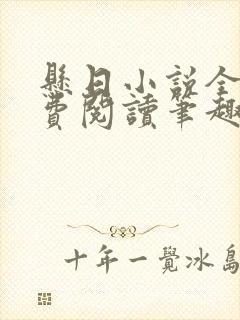 懸日小說全
費閱讀筆趣
十年一覺冰島